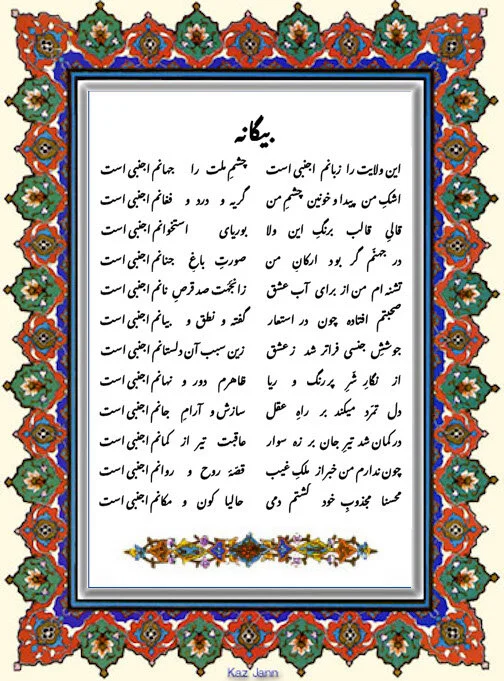 بیگانه
این ولایت را زبانم اجنبی است چشمِ ملت را جهانم اجنبی است
اشکِ من پیدا و خونین چشمِ من گریه و درد و فغانم اجنبی است
قالیِ قالب برنگِ این ولا بوریای استخوانم اجنبی است
در جهنّم گر بود ارکانِ من صورتِ باغِ جنانم اجنبی است
تشنه ام من از برای آب عشق زانجهت صد قرصِ نانم اجنبی است
صحبتم افتاده چون در استعار گفته و نطق و بیانم اجنبی است
جوششِ جنسی فراتر شد زعشق زین سبب آن دلستانم اجنبی است
از نگارِ شَرِ پررنگ و ریا ظاهرم دور و نهانم اجنبی است
دل تمرّد میکند بر راهِ عقل سازش و آرامِ جانم اجنبی است
در کمان شد تیرِ جان بر زه سوار عاقبت تیر از کمانم اجنبی است
چون ندارم من خبر از ملکِ غیب قصّهٔ روح و روانم اجنبی است
محسنا مجذوبِ خود گشتم دمی حالیا کون و مکانم اجنبی است
Kaz Jann